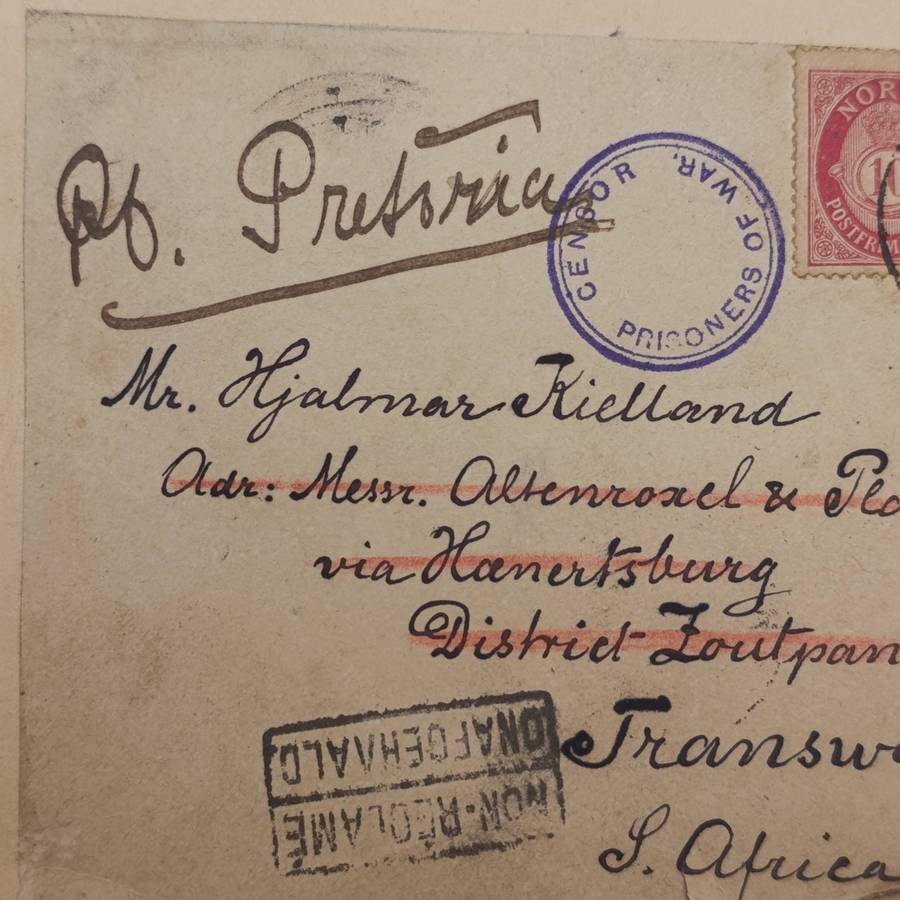 Pretoria
CENSOR PRISONERS OF WAR.
NOR
10
POSTFRIM
Mr. Hjalmar Kielland
Adr: Messr. Altenroxel & Pla
via Hænertsburg
District Zoutpan
Transw
S. Africa
ONAFGEHAALD
NON-RÉCLAMÉ